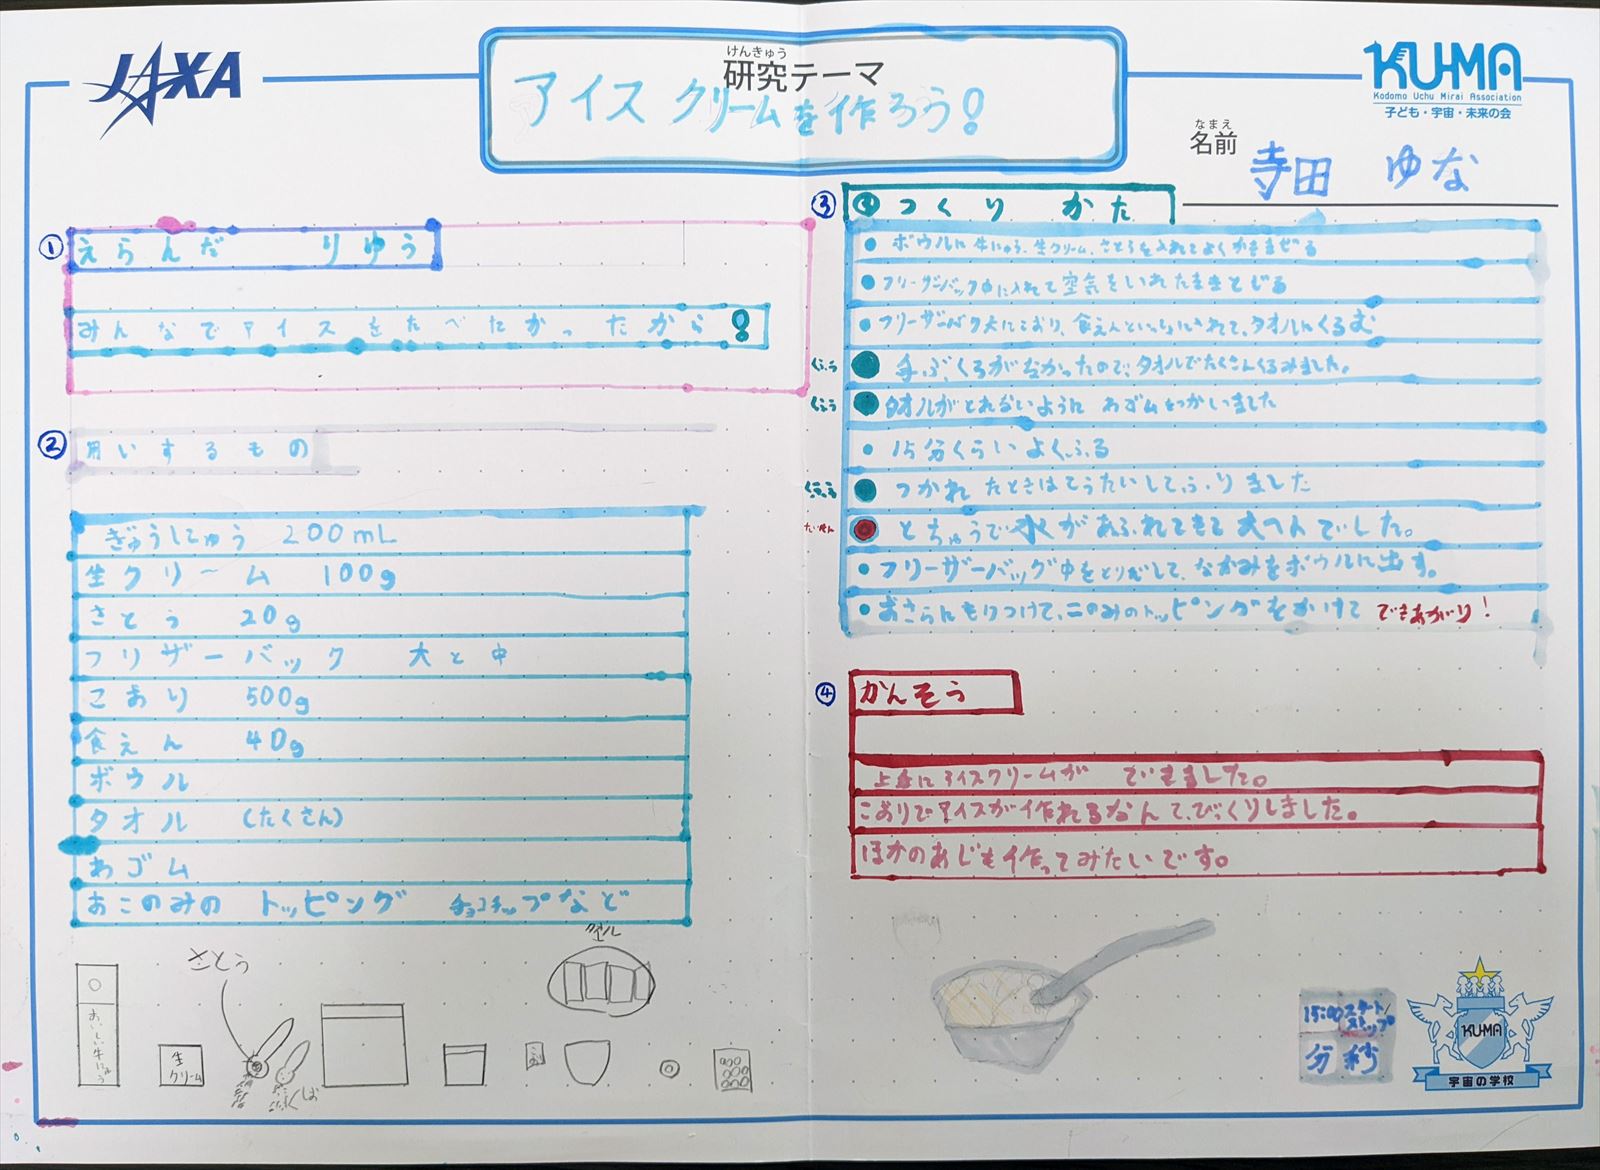 JAXA
けんきゅう
研究テーマ
アイスクリームを作ろう!
KU-MA
Kodomo Uchu Mirai Association
子ども・宇宙・未来の会
なまえ
名前
寺田 ゆな
① えらんだ りゆう
みんなでアイスをたべたかったから!
② 用いするもの
ぎゅうにゅう 200mL
生クリーム 100g
さとう 20g
フリザーバック 大と中
こおり 500g
食えん 40g
ボウル
タオル (たくさん)
わゴム
おこのみの トッピング チョコチップなど
さとう
タオル
おいしい牛にゅう
生クリーム
③ つくりかた
・ボウルに牛にゅう、生クリーム、さとうを入れてよくかきまぜる
・フリーザーバック中に入れて空気をいれたままとじる
・フリーザーバック大にこおり、食えんといっしょにいれて、タオルにくるむ
くふう ●手ぶくろがなかったので、タオルでたくさんくるみました。
くふう ●タオルがとれないように わゴムをつかいました
・15分くらい よくふる
くふう ●つかれたときはこうたいしてふりました
たいへん ●とちゅうで水があふれてきて大へんでした。
・フリーザーバッグ中をとりだして、なかみをボウルに出す。
・おさらにもりつけて、このみのトッピングをかけて できあがり!
④ かんそう
上手にアイスクリームが できました。
こおりでアイスが作れるなんて、びっくりしました。
ほかのあじも作ってみたいです。
15:00 スタート/ストップ
分 秒
KU-MA
宇宙の学校